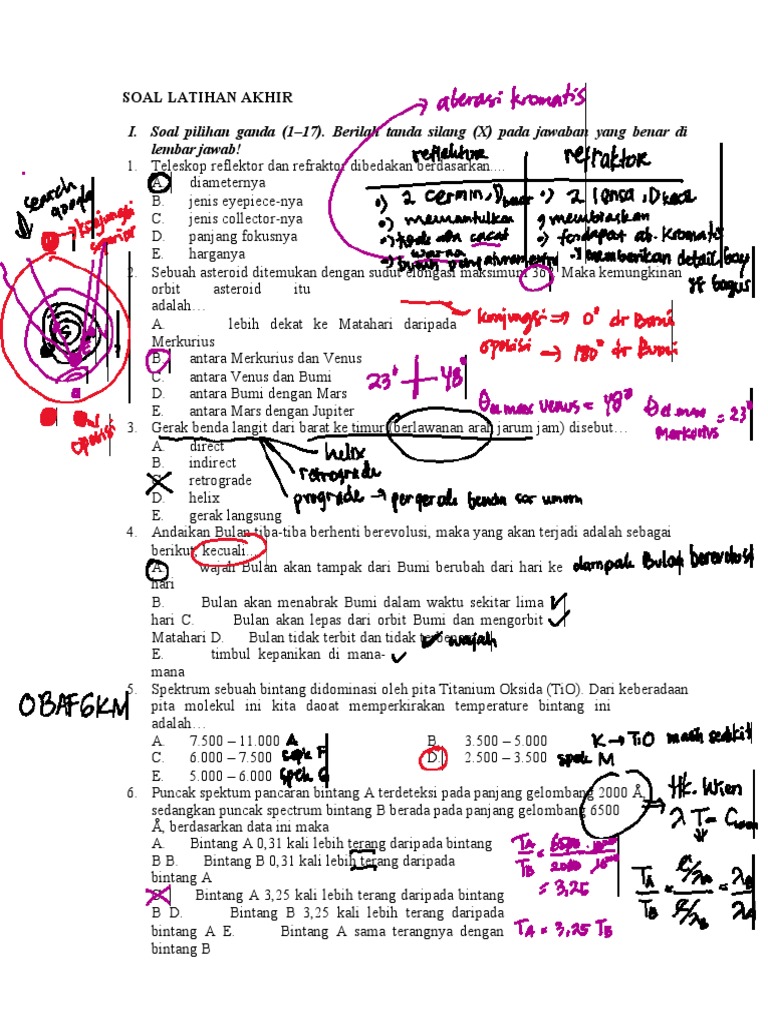 SOAL LATIHAN AKHIR
aberasi kromatis
I. Soal pilihan ganda (1–17). Berilah tanda silang (X) pada jawaban yang benar di
lembar jawab!
1. Teleskop reflektor dan refraktor dibedakan berdasarkan....
reflektor
refraktor
A. diameternya
B. jenis eyepiece-nya
C. jenis collector-nya
D. panjang fokusnya
E. harganya
2 cermin, D besar
2 lensa, D kecil
memantulkan
membiaskan
tidak ada cacat
warna
terdapat ab. kromatis
memberikan detail
bagus
search
google
konjungsi
superior
2. Sebuah asteroid ditemukan dengan sudut elongasi maksimum 36° Maka kemungkinan
orbit asteroid itu
adalah…
A. lebih dekat ke Matahari daripada
Merkurius
B. antara Merkurius dan Venus
C. antara Venus dan Bumi
D. antara Bumi dengan Mars
E. antara Mars dengan Jupiter
konjungsi => 0° dr Bumi
oposisi → 180° dr Bumi
23° 48°
θ el max venus = 48°
θ el max
Merkurius = 23°
oposisi
3. Gerak benda langit dari barat ke timur (berlawanan arah jarum jam) disebut…
A. direct
B. indirect
C. retrograde
D. helix
E. gerak langsung
helix
retrograde
prograde → pergerak benda scr umum
4. Andaikan Bulan tiba-tiba berhenti berevolusi, maka yang akan terjadi adalah sebagai
berikut, kecuali…
A. wajah Bulan akan tampak dari Bumi berubah dari hari ke
hari
dampak Bulan berevolusi
B. Bulan akan menabrak Bumi dalam waktu sekitar lima
hari C. Bulan akan lepas dari orbit Bumi dan mengorbit
Matahari D. Bulan tidak terbit dan tidak terbenam
wajah
E. timbul kepanikan di mana-
mana
5. Spektrum sebuah bintang didominasi oleh pita Titanium Oksida (TiO). Dari keberadaan
pita molekul ini kita daoat memperkirakan temperature bintang ini
adalah…
OBAFGKM
A. 7.500 – 11.000 A
B. 3.500 – 5.000 K → TiO masih sedikit
C. 6.000 – 7.500 spek F
D. 2.500 – 3.500 spek M
E. 5.000 – 6.000 spek G
6. Puncak spektum pancaran bintang A terdeteksi pada panjang gelombang 2000 Å,
sedangkan puncak spectrum bintang B berada pada panjang gelombang 6500
Å, berdasarkan data ini maka
A. Bintang A 0,31 kali lebih terang daripada bintang
B B. Bintang B 0,31 kali lebih terang daripada
bintang A
C. Bintang A 3,25 kali lebih terang daripada bintang
B D. Bintang B 3,25 kali lebih terang daripada
bintang A E. Bintang A sama terangnya dengan
bintang B
Hk. Wien
λ T = C
TA/TB = C/λA / C/λB = λB/λA
TA/TB = 6500/2000
= 3,25
TA = 3,25 TB